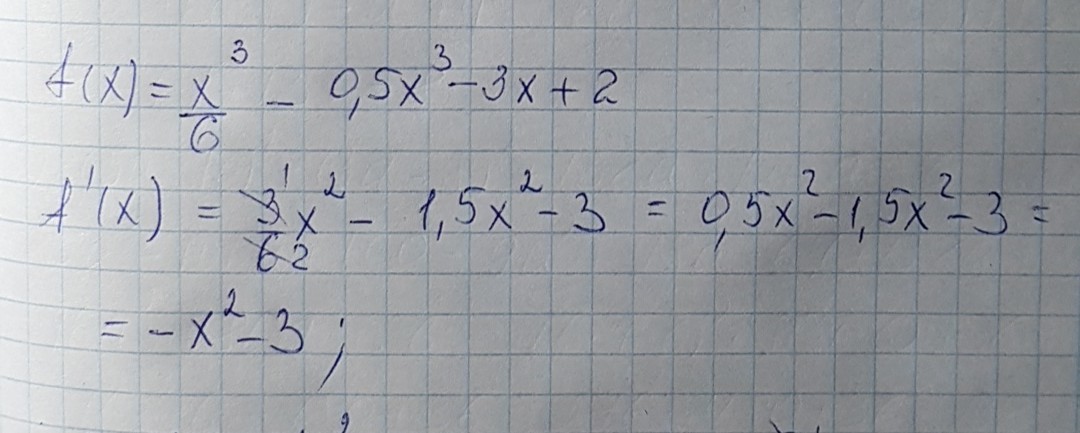 f(x) = x³/6 - 0,5x³ - 3x + 2
f'(x) = 3¹/62 x² - 1,5x² - 3 = 0,5x² - 1,5x² - 3 =
= -x² - 3;